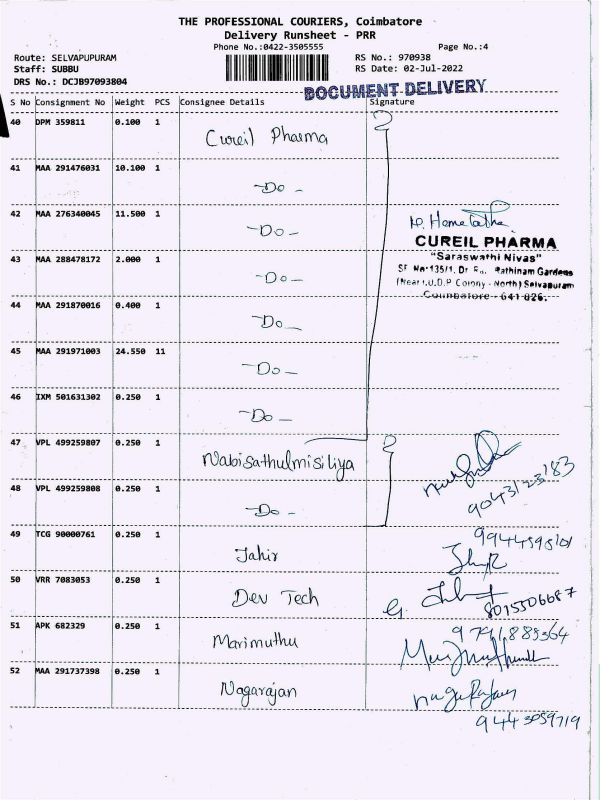 THE PROFESSIONAL COURIERS, Coimbatore
Delivery Runsheet - PRR
Phone No.:0422-3505555
Page No.:4
Route: SELVAPUPURAM
RS No.: 970938
Staff: SUBBU
RS Date: 02-Jul-2022
DRS No.: DCJB97093804
DOCUMENT DELIVERY
S No Consignment No Weight PCS Consignee Details Signature
40 DPM 359811 0.100 1 Cureil Pharma
41 MAA 291476031 10.100 1 -Do-
42 MAA 276340045 11.500 1 -Do-
P. Hemalatha
CUREIL PHARMA
"Saraswathi Nivas"
43 MAA 288478172 2.000 1 -Do-
SF No-135/1, Dr Rathinam Gardens
(Near T.U.D.P Colony - North) Selvapuram
Coimbatore - 641 026.
44 MAA 291870016 0.400 1 -Do-
45 MAA 291971003 24.550 11 -Do-
46 IXM 501631302 0.250 1 -Do-
47 VPL 499259807 0.250 1 Nabisathulmisiliya
9043123183
48 VPL 499259808 0.250 1 -Do-
49 TCG 90000761 0.250 1 Jahir
9944595101
50 VRR 7083053 0.250 1 Dev Tech
8015506687
51 APK 682329 0.250 1 Marimuthu
9791885364
52 MAA 291737398 0.250 1 Nagarajan
Nagarajan
9443059719